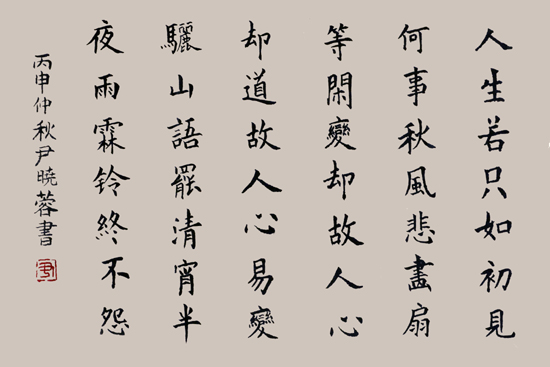 人生若只如初見
何事秋風悲畫扇
等閑變却故人心
却道故人心易變
驪山語罷清宵半
夜雨霖铃終不怨
丙申仲秋尹曉蓉書